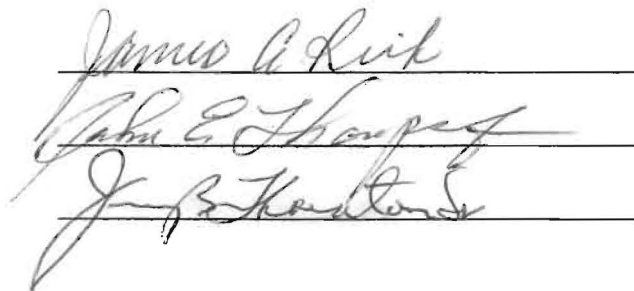 James A Rick
John E Thompson
B Thornton Sr